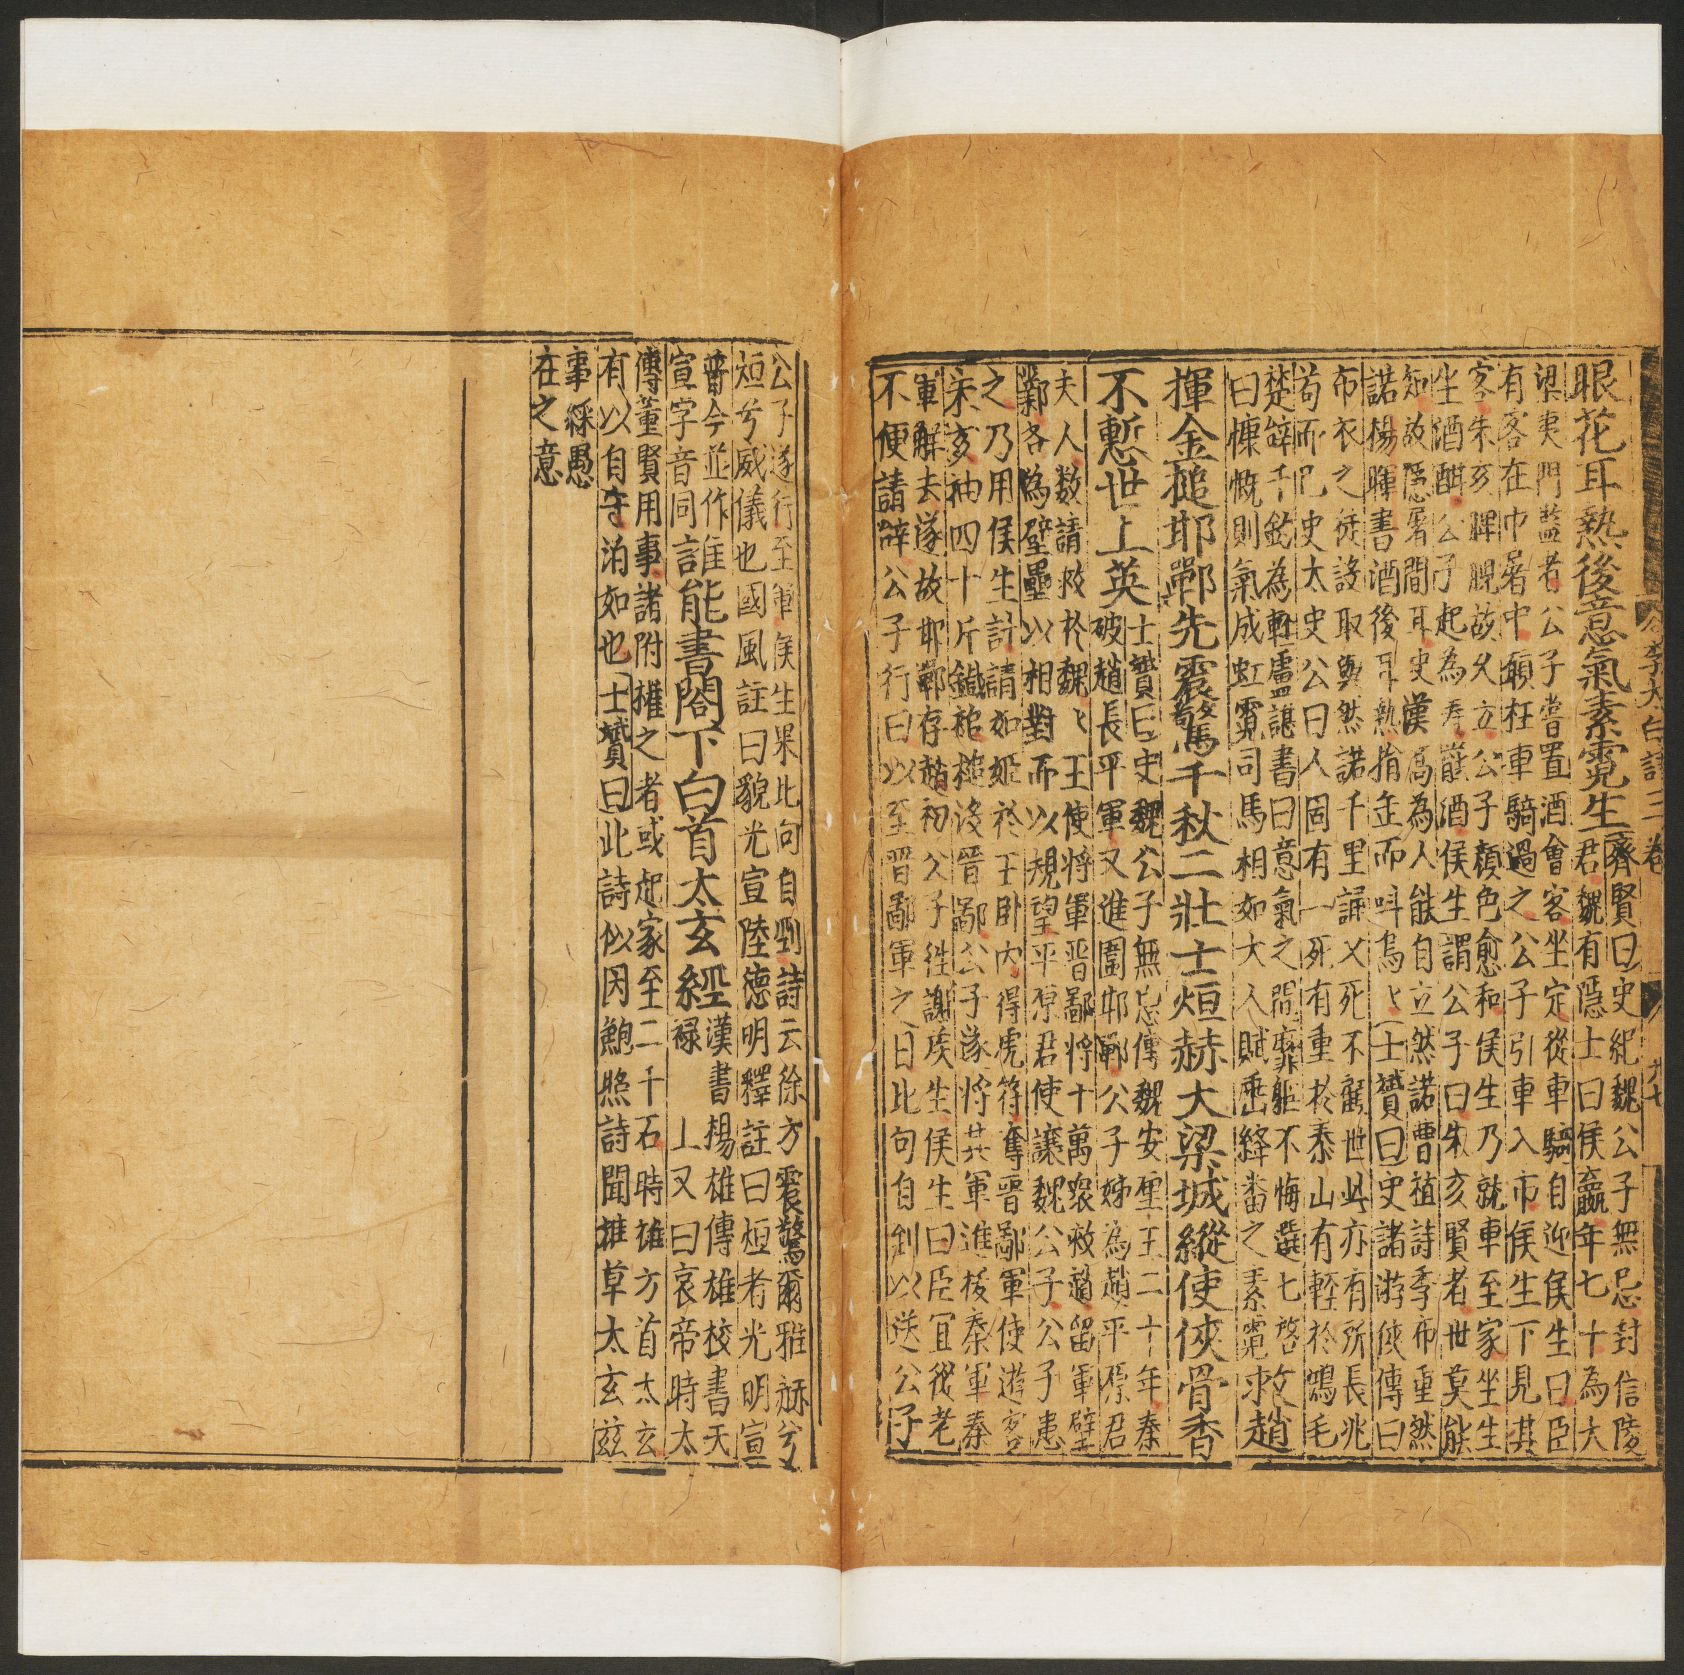 眼花耳熱後意氣素霓生
齊賢曰史紀魏公子無忌封信陵
君魏有隱士曰侯嬴年七十為大
梁夷門監者公子嘗置酒會客坐定從車騎自迎侯生曰臣
有客在市屠中願枉車騎過之公子引車入市侯生下見其
客朱亥睥睨故久立公子顔色愈和侯生乃就車至家坐生
坐酒酣公子起為壽嶭酒侯生謂公子曰朱亥賢者世莫能
知故隱屠間耳史漢高為人能自立然諾曹植詩季布重然
諾楊暉書酒後耳熱揹缶而呌烏〻士贇曰史諸游俠傳曰
布衣之徒設取與然諾千里誦义死不顧世此亦有所長兆
苟而已史太史公曰人固有一死有重於泰山有輕於鴻毛
楚辭千鈞為輕盧諶書曰意氣之間靡軀不悔選七啓
曰慷慨則氣成虹霓司馬相如大人賦垂絳番之素霓
救趙
揮金槌邯鄲先震驚千秋二壯士烜赫大梁城縱使俠骨香
不慙世上英
士贇曰史魏公子無忌傳魏安厘王二十年秦
破趙長平軍又進圍邯鄲公子姊為趙平原君
夫人数請救於魏〻王使將軍晋鄙將十萬衆救趙留軍壁
鄴名為壁壘以相對而以規望平原君使讓魏公子公子患
之乃用侯生計請如姬於王卧内得虎符奪晋鄙軍使遊客
朱亥袖四十斤鐵槌槌殺晋鄙公子遂將其軍進拔秦軍秦
軍觧去遂故邯鄲存趙初公子徃謝侯生侯生曰臣冝從老
不便請辭公子行日以至晋鄙軍之日北句自剄以送公子
公子遂行至軍侯生果北向自剄詩云徐方震驚爾雅赫兮
烜兮威儀也國風註曰貌光宣陸徳明釋註曰烜者光明宣
普今並作
宣字音同
誰能書閣下白首太玄經
漢書揚雄傳雄校書天
禄　上又曰哀帝時太
傅董賢用事諸附擁之者或起家至二千石時雄方首太玄
有以自守泊如也士贇曰此詩似因鮑照詩聞雄草太玄茲
事綵愚
在之意
李太白詩三卷